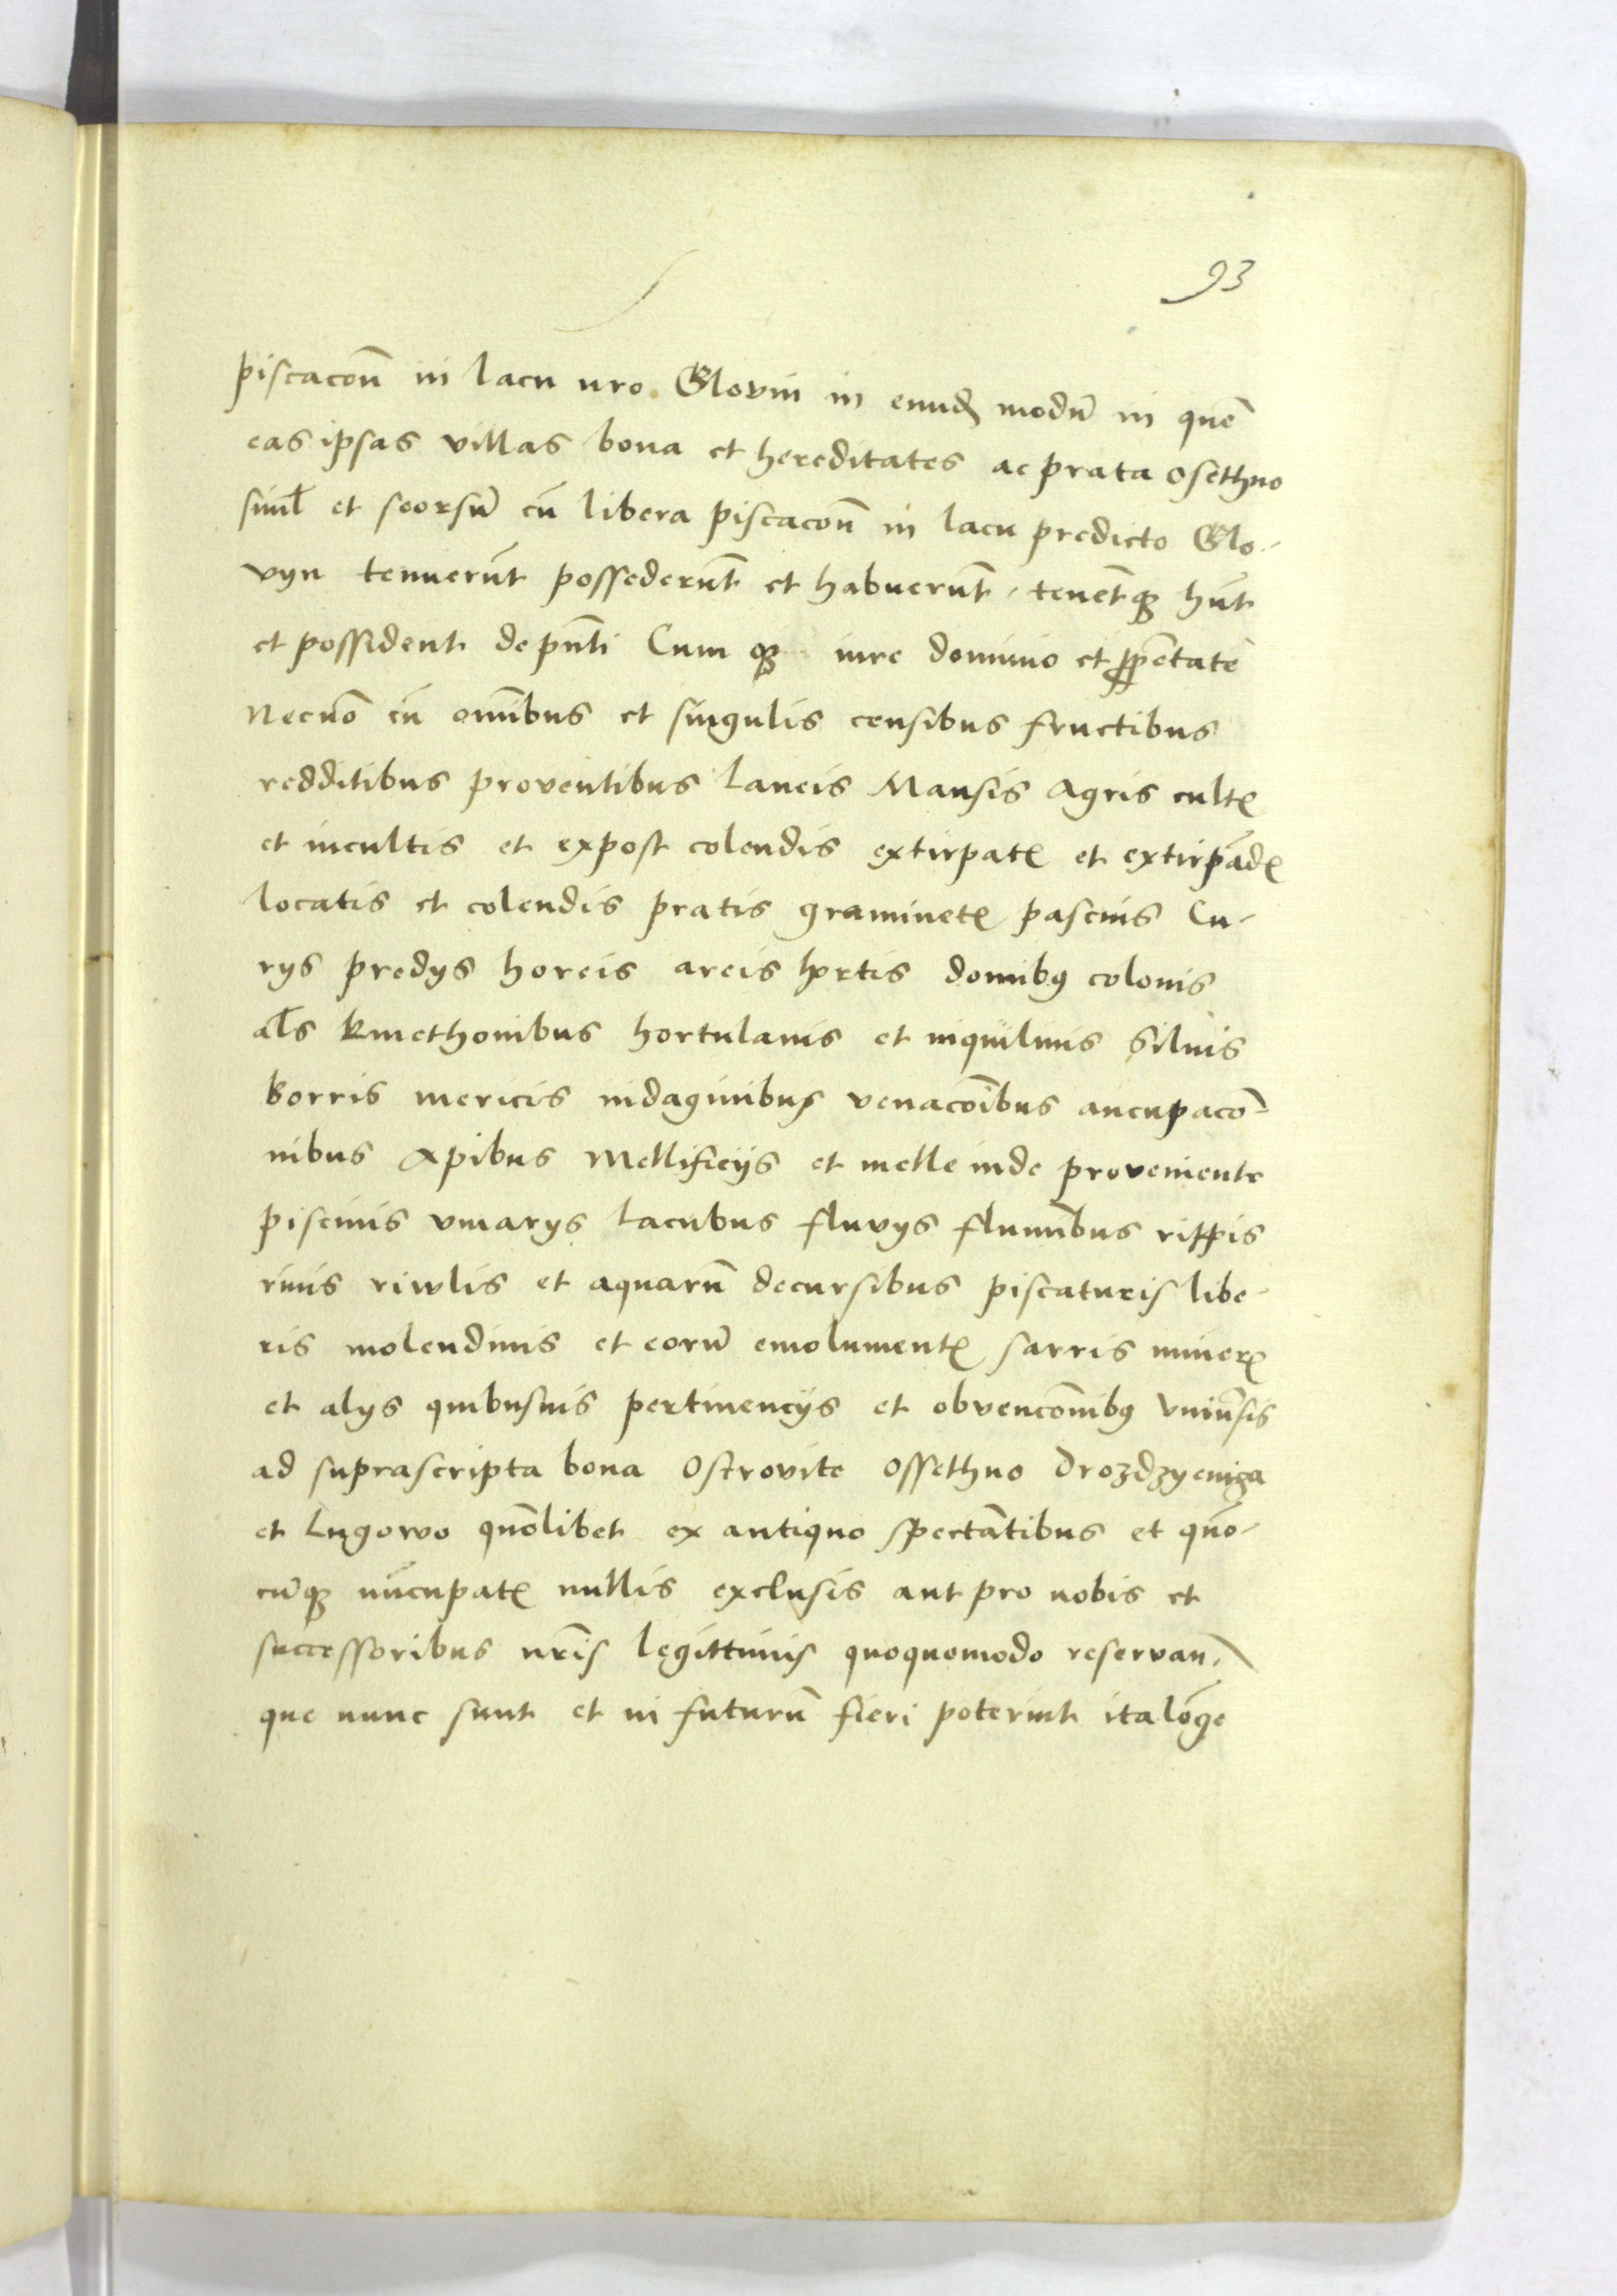 93
piscacoē in lacu nro Glovin in eundē modū in quē
eas ipsas villas bona et hereditates ac prata osethno
siml̄ et seorsū cū libera piscacoē in lacu predicto Glo-
vyn tenuerūt possederūt et habuerūt tenētqꝫ hūt
et possident de pn̄ti Cum qꝫ iure dominio et ꝓprietate
necnō cū omībus et singulis censibus fructibus
redditibus proventibus laneis Mansis Agris cultꝭ
et incultis et expost colendis extirpatꝭ et extirpādꝭ
locatis et colendis pratis graminetꝭ pascuis Cu-
rys predys horeis areis hortis domibꝯ colonis
al̄s kmethonibus hortulanis et inquilinis Siluis
borris mericis indaginibus venacōibus aucupaco-
nibus Apibus Mellificijs et melle inde proveniente
piscinis vinarys lacubus fluvys fluminibus rippis
rivis riwlis et aquarū decursibus piscaturis libe-
ris molendinis et eorū emolumentꝭ sarris minerꝭ
et alys quibusuis pertinencijs et obvencōnibꝯ vniūsis
ad suprascripta bona Ostrovite ossethno Drozdzyeniza
et Lugowo quōlibet ex antiquo spectātibus et quō-
cūqꝫ nūcupatꝭ nullis exclusis aut pro nobis et
successoribus nr̄is legittimis quoquomodo reservan̄
que nunc sunt et in futurū fieri poterint ita lōge